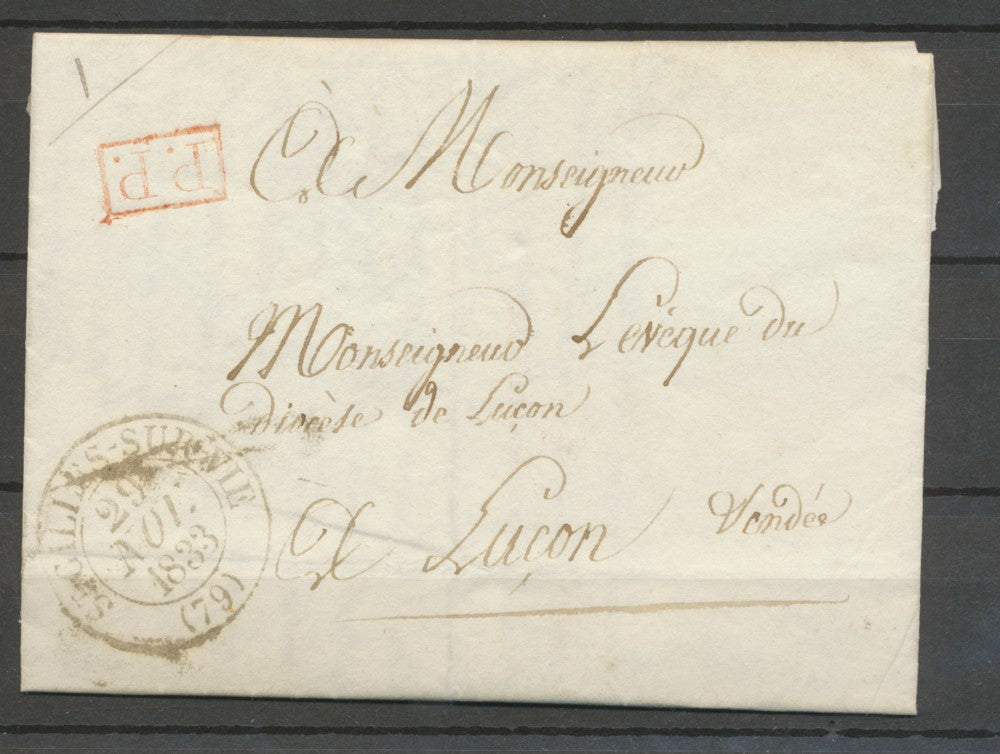 P.P.
À Monseigneur
Monseigneur Levêque du
diocèse de Luçon
À Luçon Vendée
ST GILLES-SUR-VIE
29
AOUT
1833
(79)